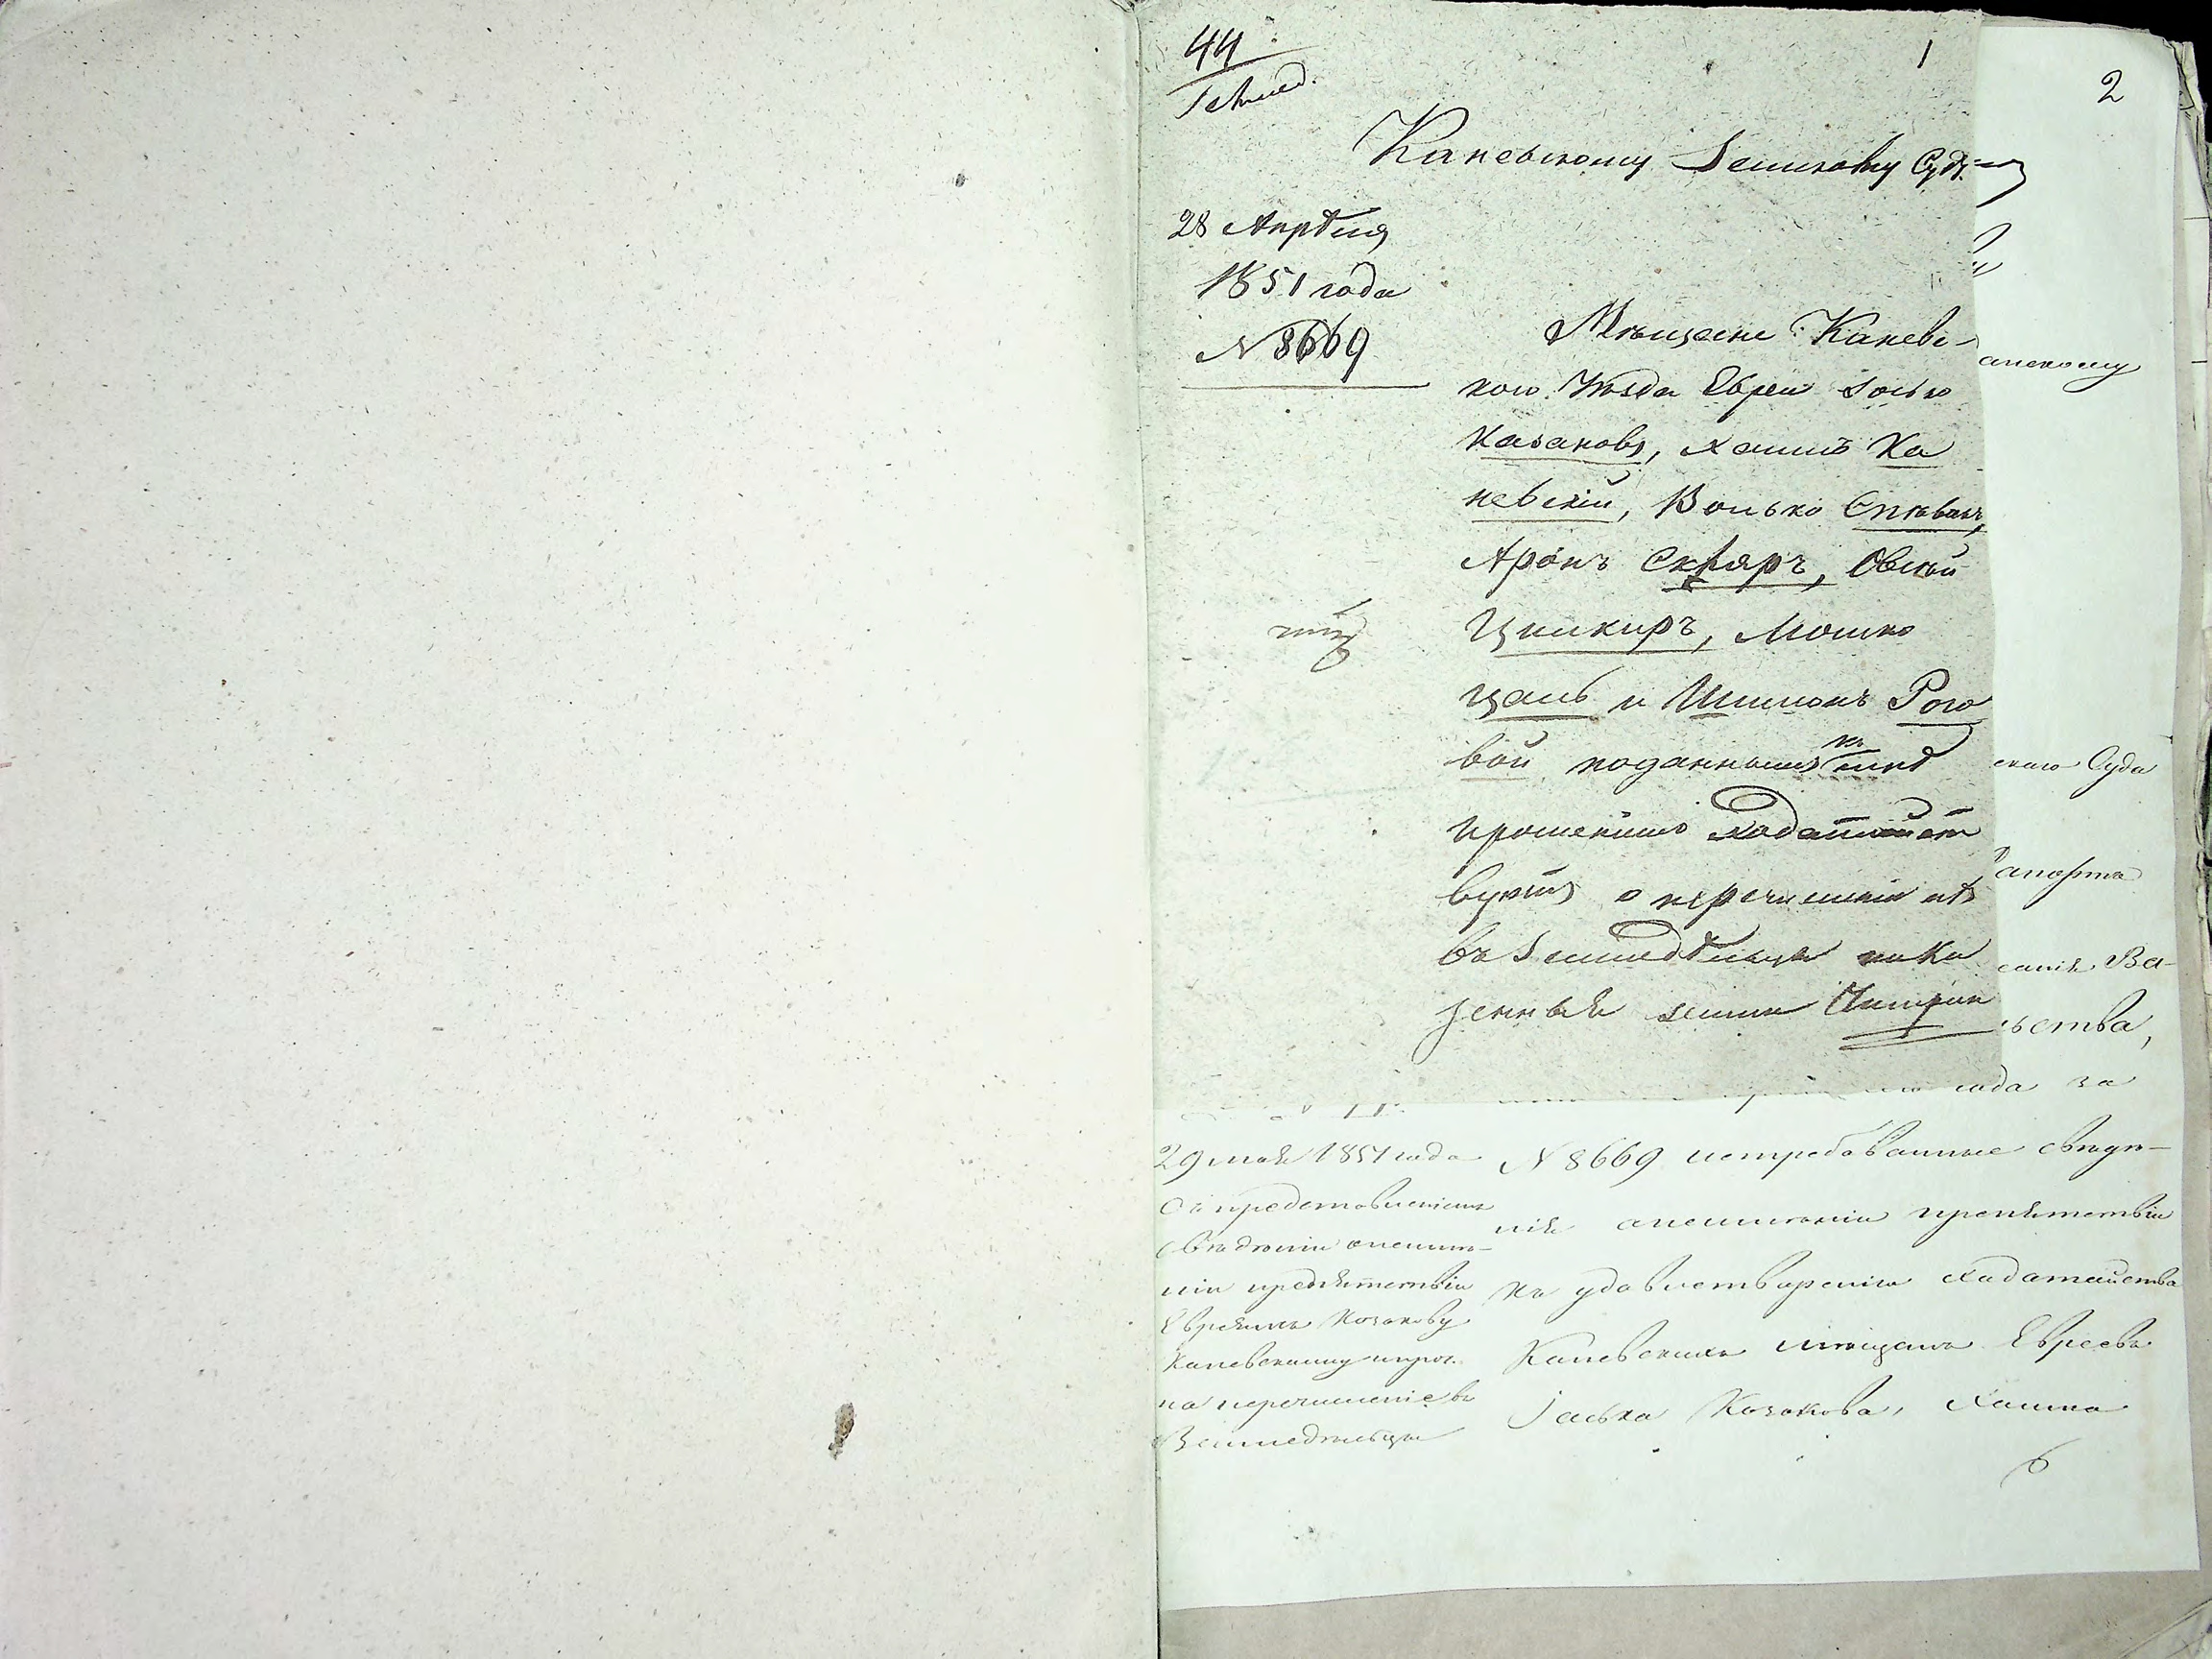 44
1
Каневскому Земскому Суду
28 Апрѣля
1851 года
N 8669
Мѣщане Каневс-
кого Уѣзда Евреи Іосько
Казаковъ, Хаимъ Ка
невскій, Волько Спѣвакъ,
Аронъ Скляръ, Овсѣй
Цымкиръ, Мошко
Цаль и Шимонъ Рого
вой поданнымъ мнѣ
прошеніемъ ходатайст
вуютъ о перечисленіи ихъ
въ Земледѣльцы на Ка
зенныя земли
2
анскому
скаго Суда
апорта
санія Ва-
ьства,
года за
29 мая 1851 года
Съ представленіемъ
свѣдѣній онеимѣ-
ніи препятствія
Евреямъ Козакову
Каневскому и проч.
на перечисленіе въ
Земледѣльцы
N 8669 истребованные свѣдѣ-
нія онеимѣніи препятствія
къ удовлетворенію ходатайства
Каневскихъ мѣщанъ Евреевъ
Іоська Козакова, Хаима